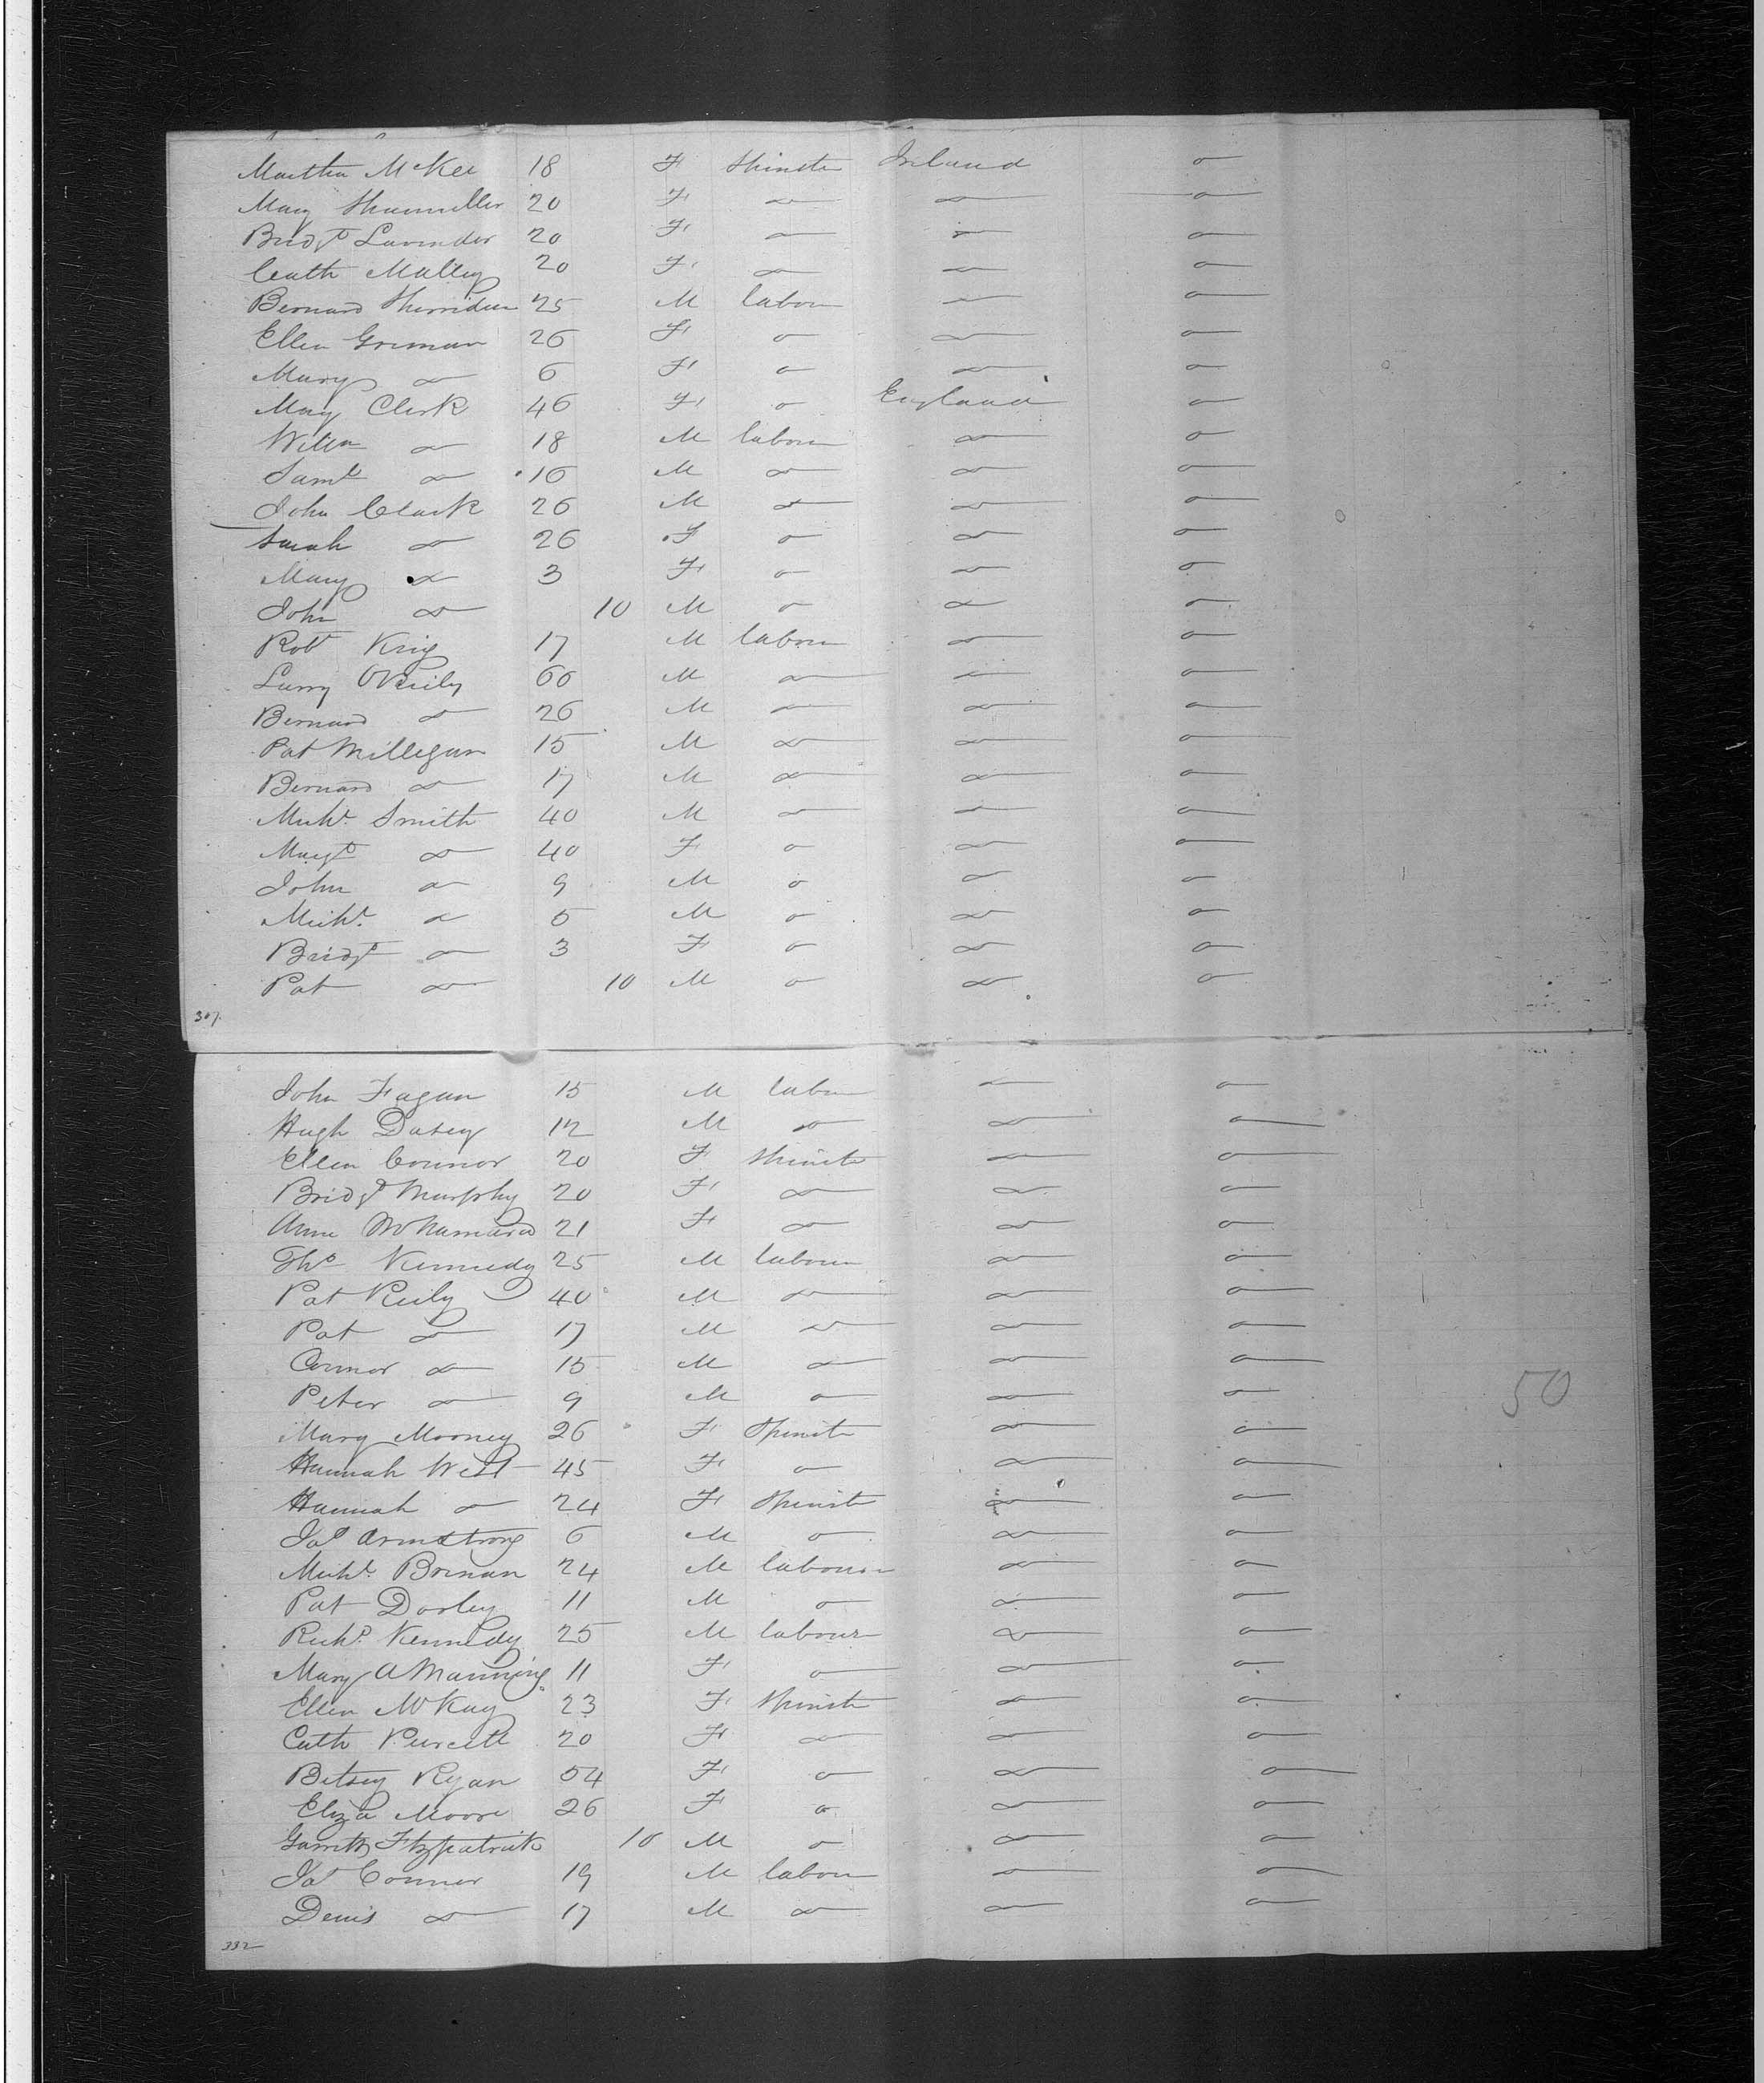 Martha McKee 18 F Spinster Ireland do
Mary 20 F do do do
Bridgt Lavender 20 F do do do
Cath Malley 20 F do do do
Bernard Sherridan 25 M labour do do
Ellen Grennan 26 F do do do
Mary do 6 F do do do
Mary Clark 46 F do England do
Willm do 18 M labour do do
Saml do 16 M do do do
John Clark 26 M do do do
Sarah do 26 F do do do
Mary do 3 F do do do
John do 10 M do do do
Robt King 17 M labour do do
Larry OReily 60 M do do do
Bernard do 26 M do do do
Pat Milligan 15 M do do do
Bernard do 17 M do do do
Michl Smith 40 M do do do
Margt do 40 F do do do
John do 9 M do do do
Michl do 5 M do do do
Bridgt do 3 F do do do
Pat do 10 M do do do
307.
John Fagan 15 M labour do do
Hugh 12 M do do do
Ellen Connor 20 F Spinst do do
Bridgt Murphy 20 F do do do
Anne McNamara 21 F do do do
Ths Kennedy 25 M labour do do
Pat Reily 40 M do do do
Pat do 17 M do do do
Connor do 15 M do do do
Peter do 9 M do do do
50
Mary Mooney 26 F Spinst do do
Hannah West 45 F do do do
Hannah do 24 F Spinst do do
Jas Armstrong 6 M do do do
Michl Brenan 24 M labourer do do
Pat Dorley 11 M do do do
Richd Kennedy 25 M labour do do
Mary A Manning 11 F do do do
Ellen McKay 23 F Spinst do do
Cath Purcell 20 F do do do
Betsey Ryan 54 F do do do
Eliza Moore 26 F do do do
Garrett Fitzpatrick 10 M do do do
Jas Connor 19 M labour do do
Denis do 17 M do do do
332